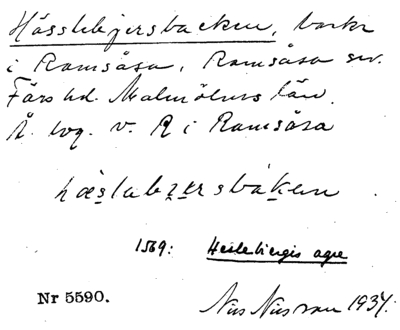 Hässlebjersbacken, backe
i Ramsåsa, Ramsåsa sn.
Färs hd. Malmöhus län.
Å. log. v. R i Ramsåsa
hæslabjærsbaken
1569: Hesle biergis agre
Nr 5590.
Nils Nilsson 1934.